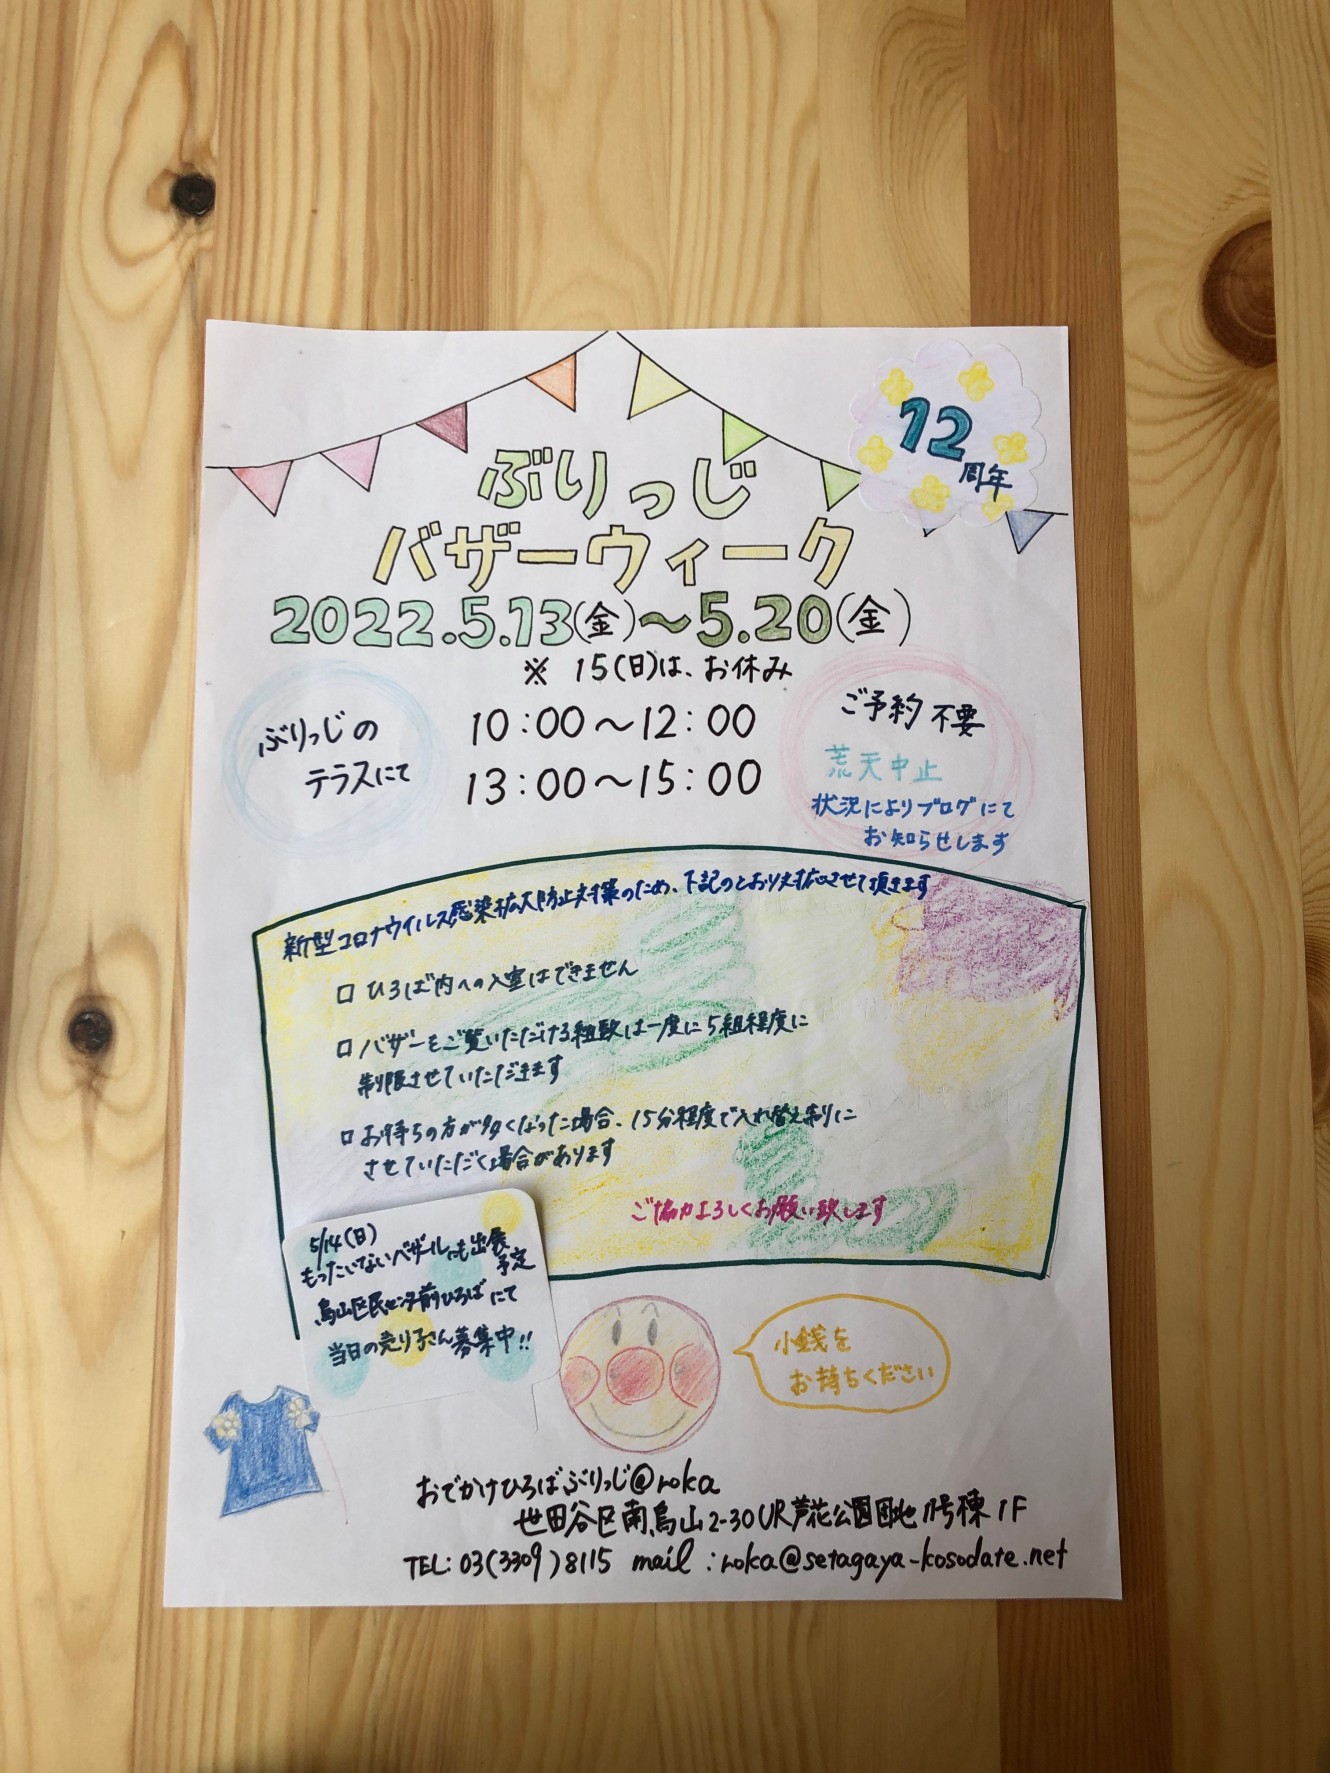 12
周年
ぶりっじ
バザーウィーク
2022.5.13(金)～5.20(金)
※ 15(日)は、お休み
ぶりっじの
テラスにて
10:00～12:00
13:00～15:00
ご予約不要
荒天中止
状況によりブログにて
お知らせします
新型コロナウイルス感染拡大防止対策のため、下記のとおり対応させて頂きます
□ ひろば内への入室はできません
□ バザーをご覧いただける組数は一度に5組程度に
制限させていただきます
□ お待ちの方が多くなった場合、15分程度で入れ替え制に
させていただく場合があります
ご協力よろしくお願い致します
5/14(日)
もったいないバザールにも出展
予定
烏山区民センター前ひろばにて
当日の売り子さん募集中!!
小銭を
お持ちください
おでかけひろばぶりっじ@roka
世田谷区南烏山2-30UR芦花公園団地11号棟1F
TEL:03(3309)8115 mail:roka@setagaya-kosodate.net